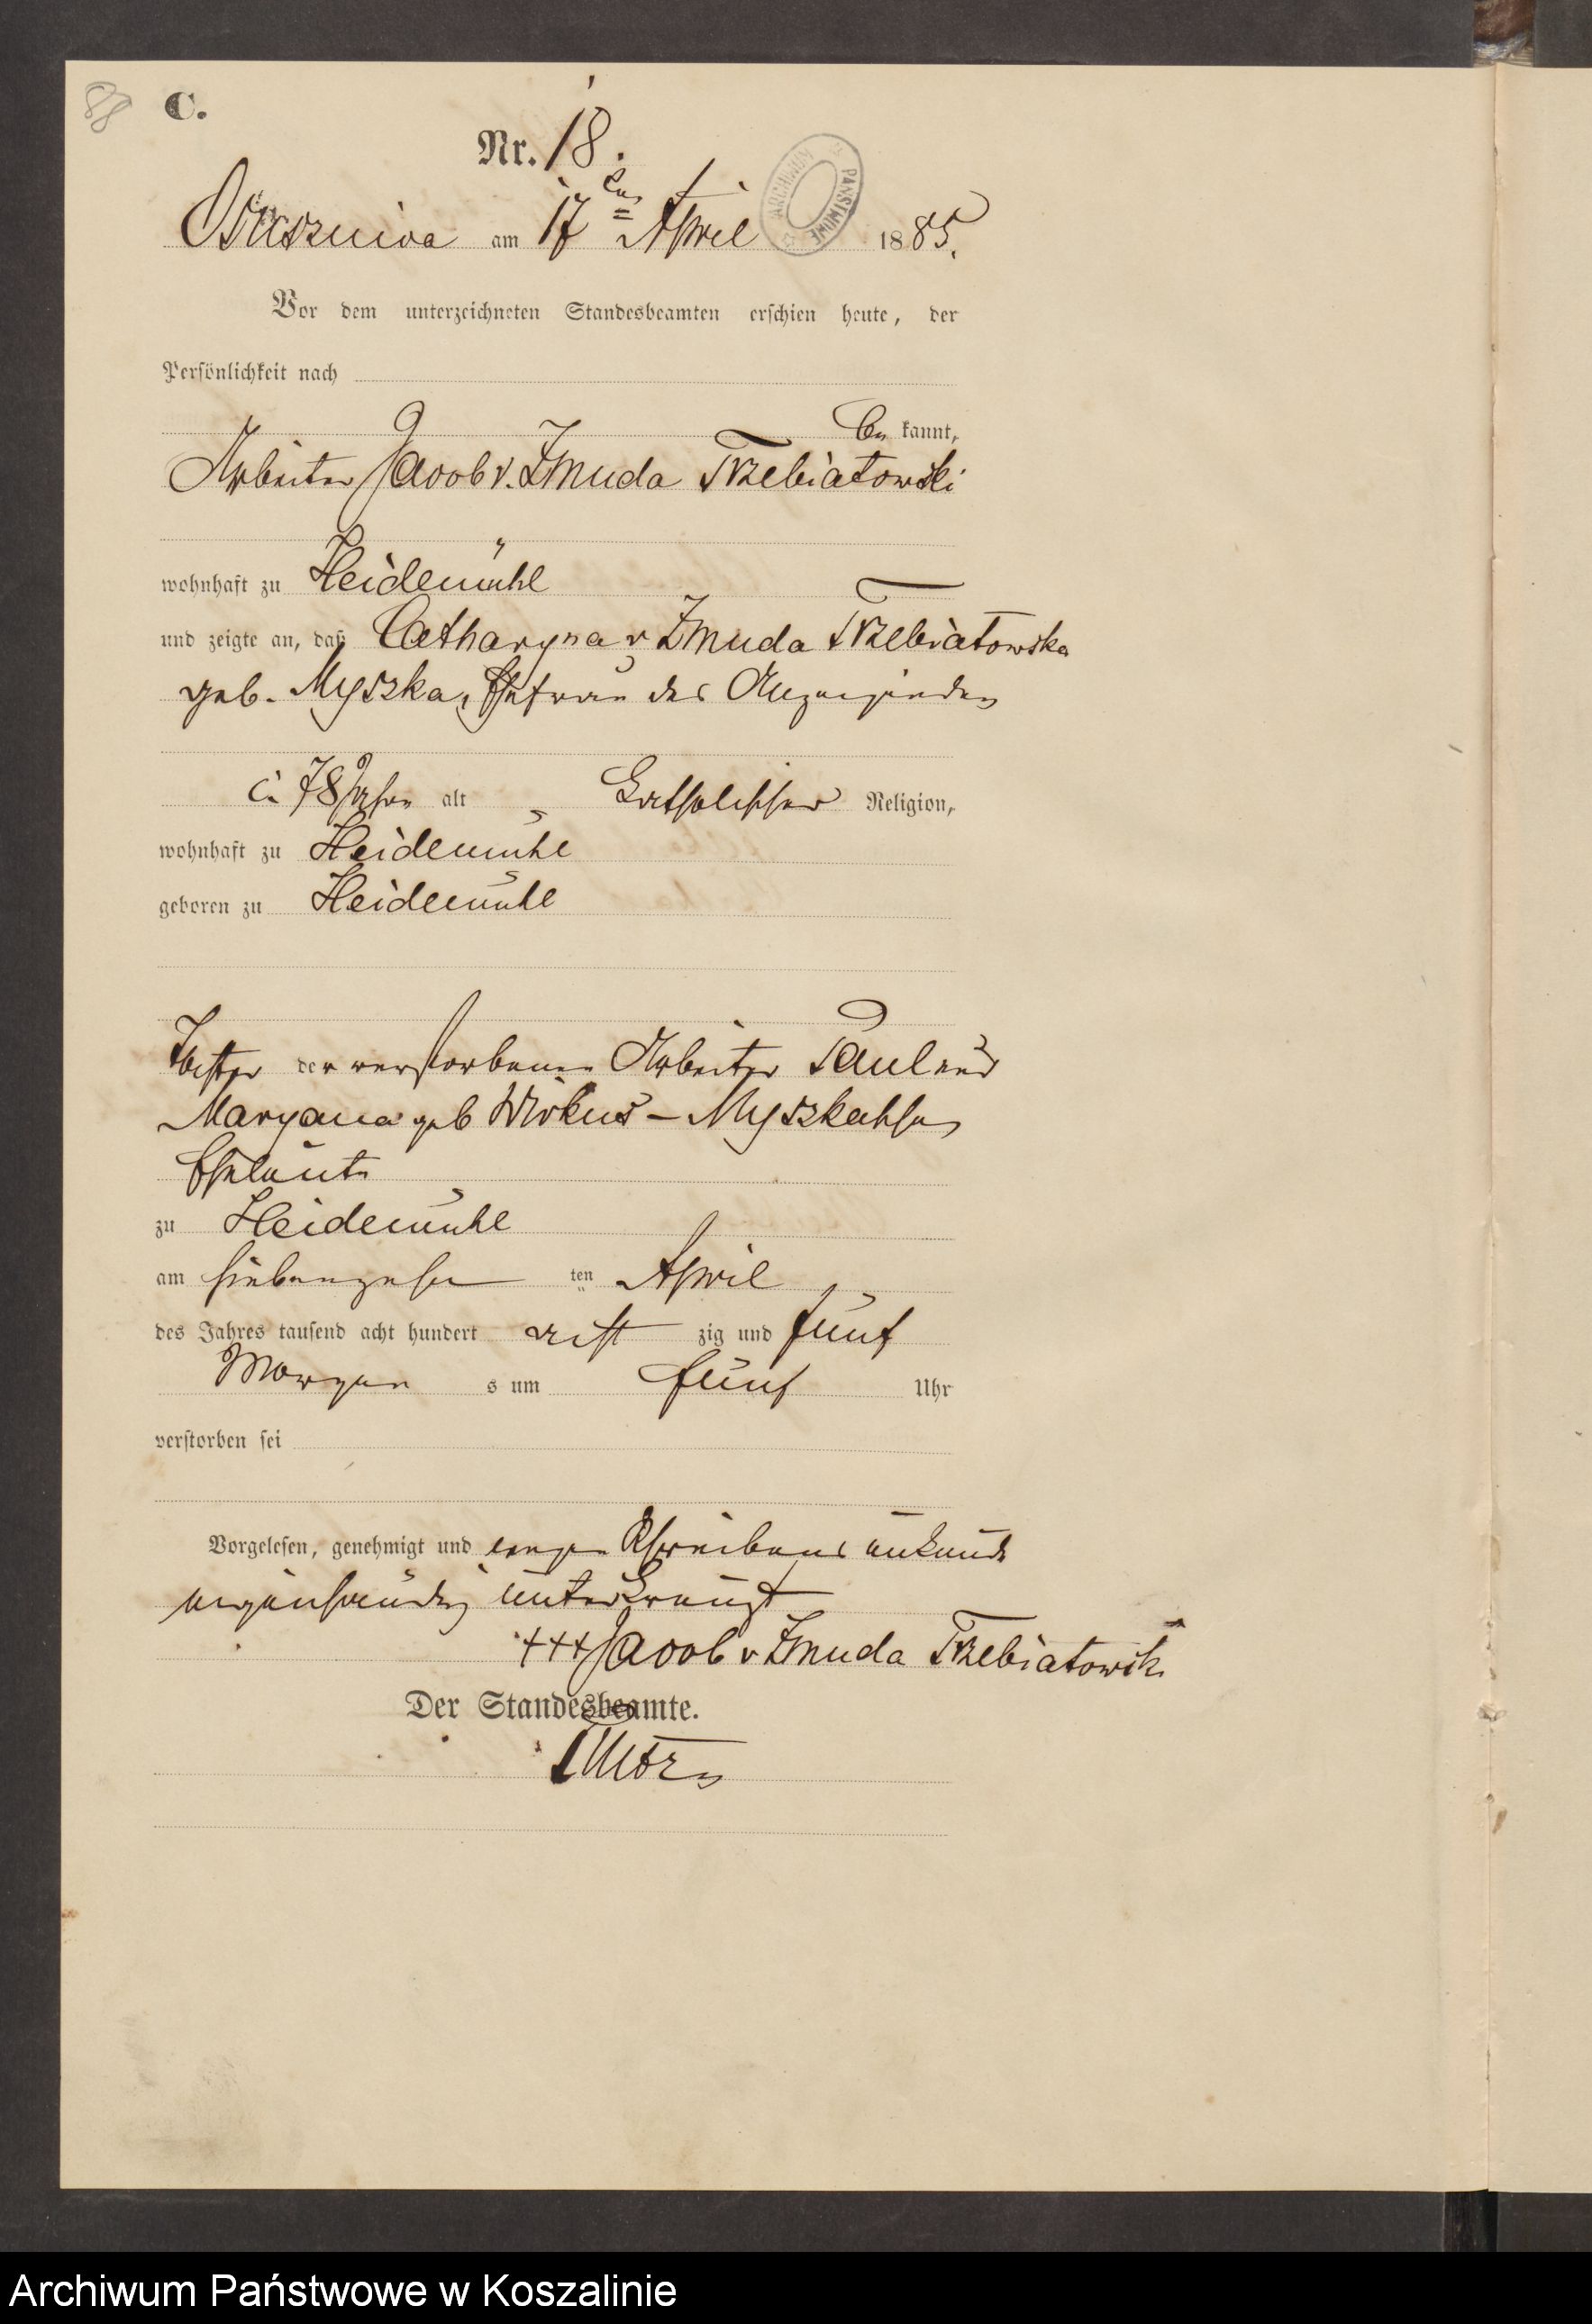 88
C.
Nr. 18.
am 17ten April 1885.
ARCHIWUM PAŃSTWOWE
Vor dem unterzeichneten Standesbeamten erschien heute, der
Persönlichkeit nach
be kannt,
Arbeiter Jacob v. Zmuda Trzebiatowski
wohnhaft zu Heidemühl
und zeigte an, daß Catharyna v Zmuda Trzebiatowska
geb. Myszka, Ehefrau des Anzeigenden
78 Jahre alt Katholischer Religion,
wohnhaft zu Heidemühl
geboren zu Heidemühl
Tochter der verstorbenen Arbeiter Paul und
Maryana geb Wirkus - Myszkaschen
Eheleute
zu Heidemühl
am siebenzehn ten April
des Jahres tausend acht hundert acht zig und fünf
Morgen s um fünf Uhr
verstorben sei
Vorgelesen, genehmigt und wegen Schreibens unkunde
eigenhändig unterkreuzt
+++ Jacob v Zmuda Trzebiatowski
Der Standesbeamte.
Archiwum Państwowe w Koszalinie